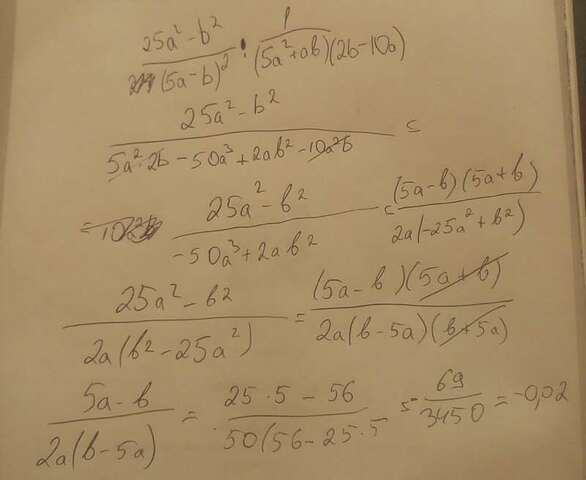 25a² - b² / (5a - b)² · 1 / (5a² + ab)(2b - 10a)
25a² - b² / 5a²·2b - 50a³ + 2ab² - 10a²b =
= 25a² - b² / -50a³ + 2ab² = (5a - b)(5a + b) / 2a(-25a² + b²)
25a² - b² / 2a(b² - 25a²) = (5a - b)(5a + b) / 2a(b - 5a)(b + 5a)
5a - b / 2a(b - 5a) = 25·5 - 56 / 50(56 - 25·5 = 69 / 3450 = -0,02